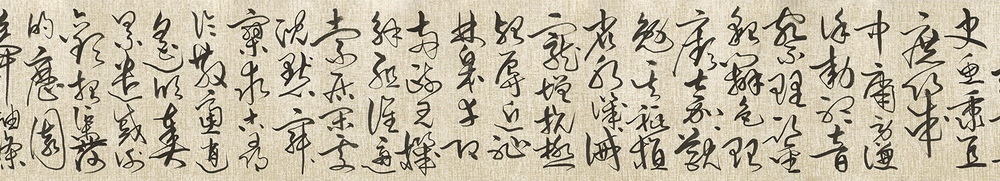 史魚秉直
庶幾
中庸勞謙
謹敕聆音
察理鑒
貌辨色貽
厥嘉猷
勉其祗植
省躬譏誡
寵增抗極
殆辱近恥
林皋幸即
兩疏見機
解組誰逼
索居閑處
沉默寂
寥求古尋
論散慮逍
遙欣奏
累遣慼謝
歡招渠荷
的歷園
莽抽條